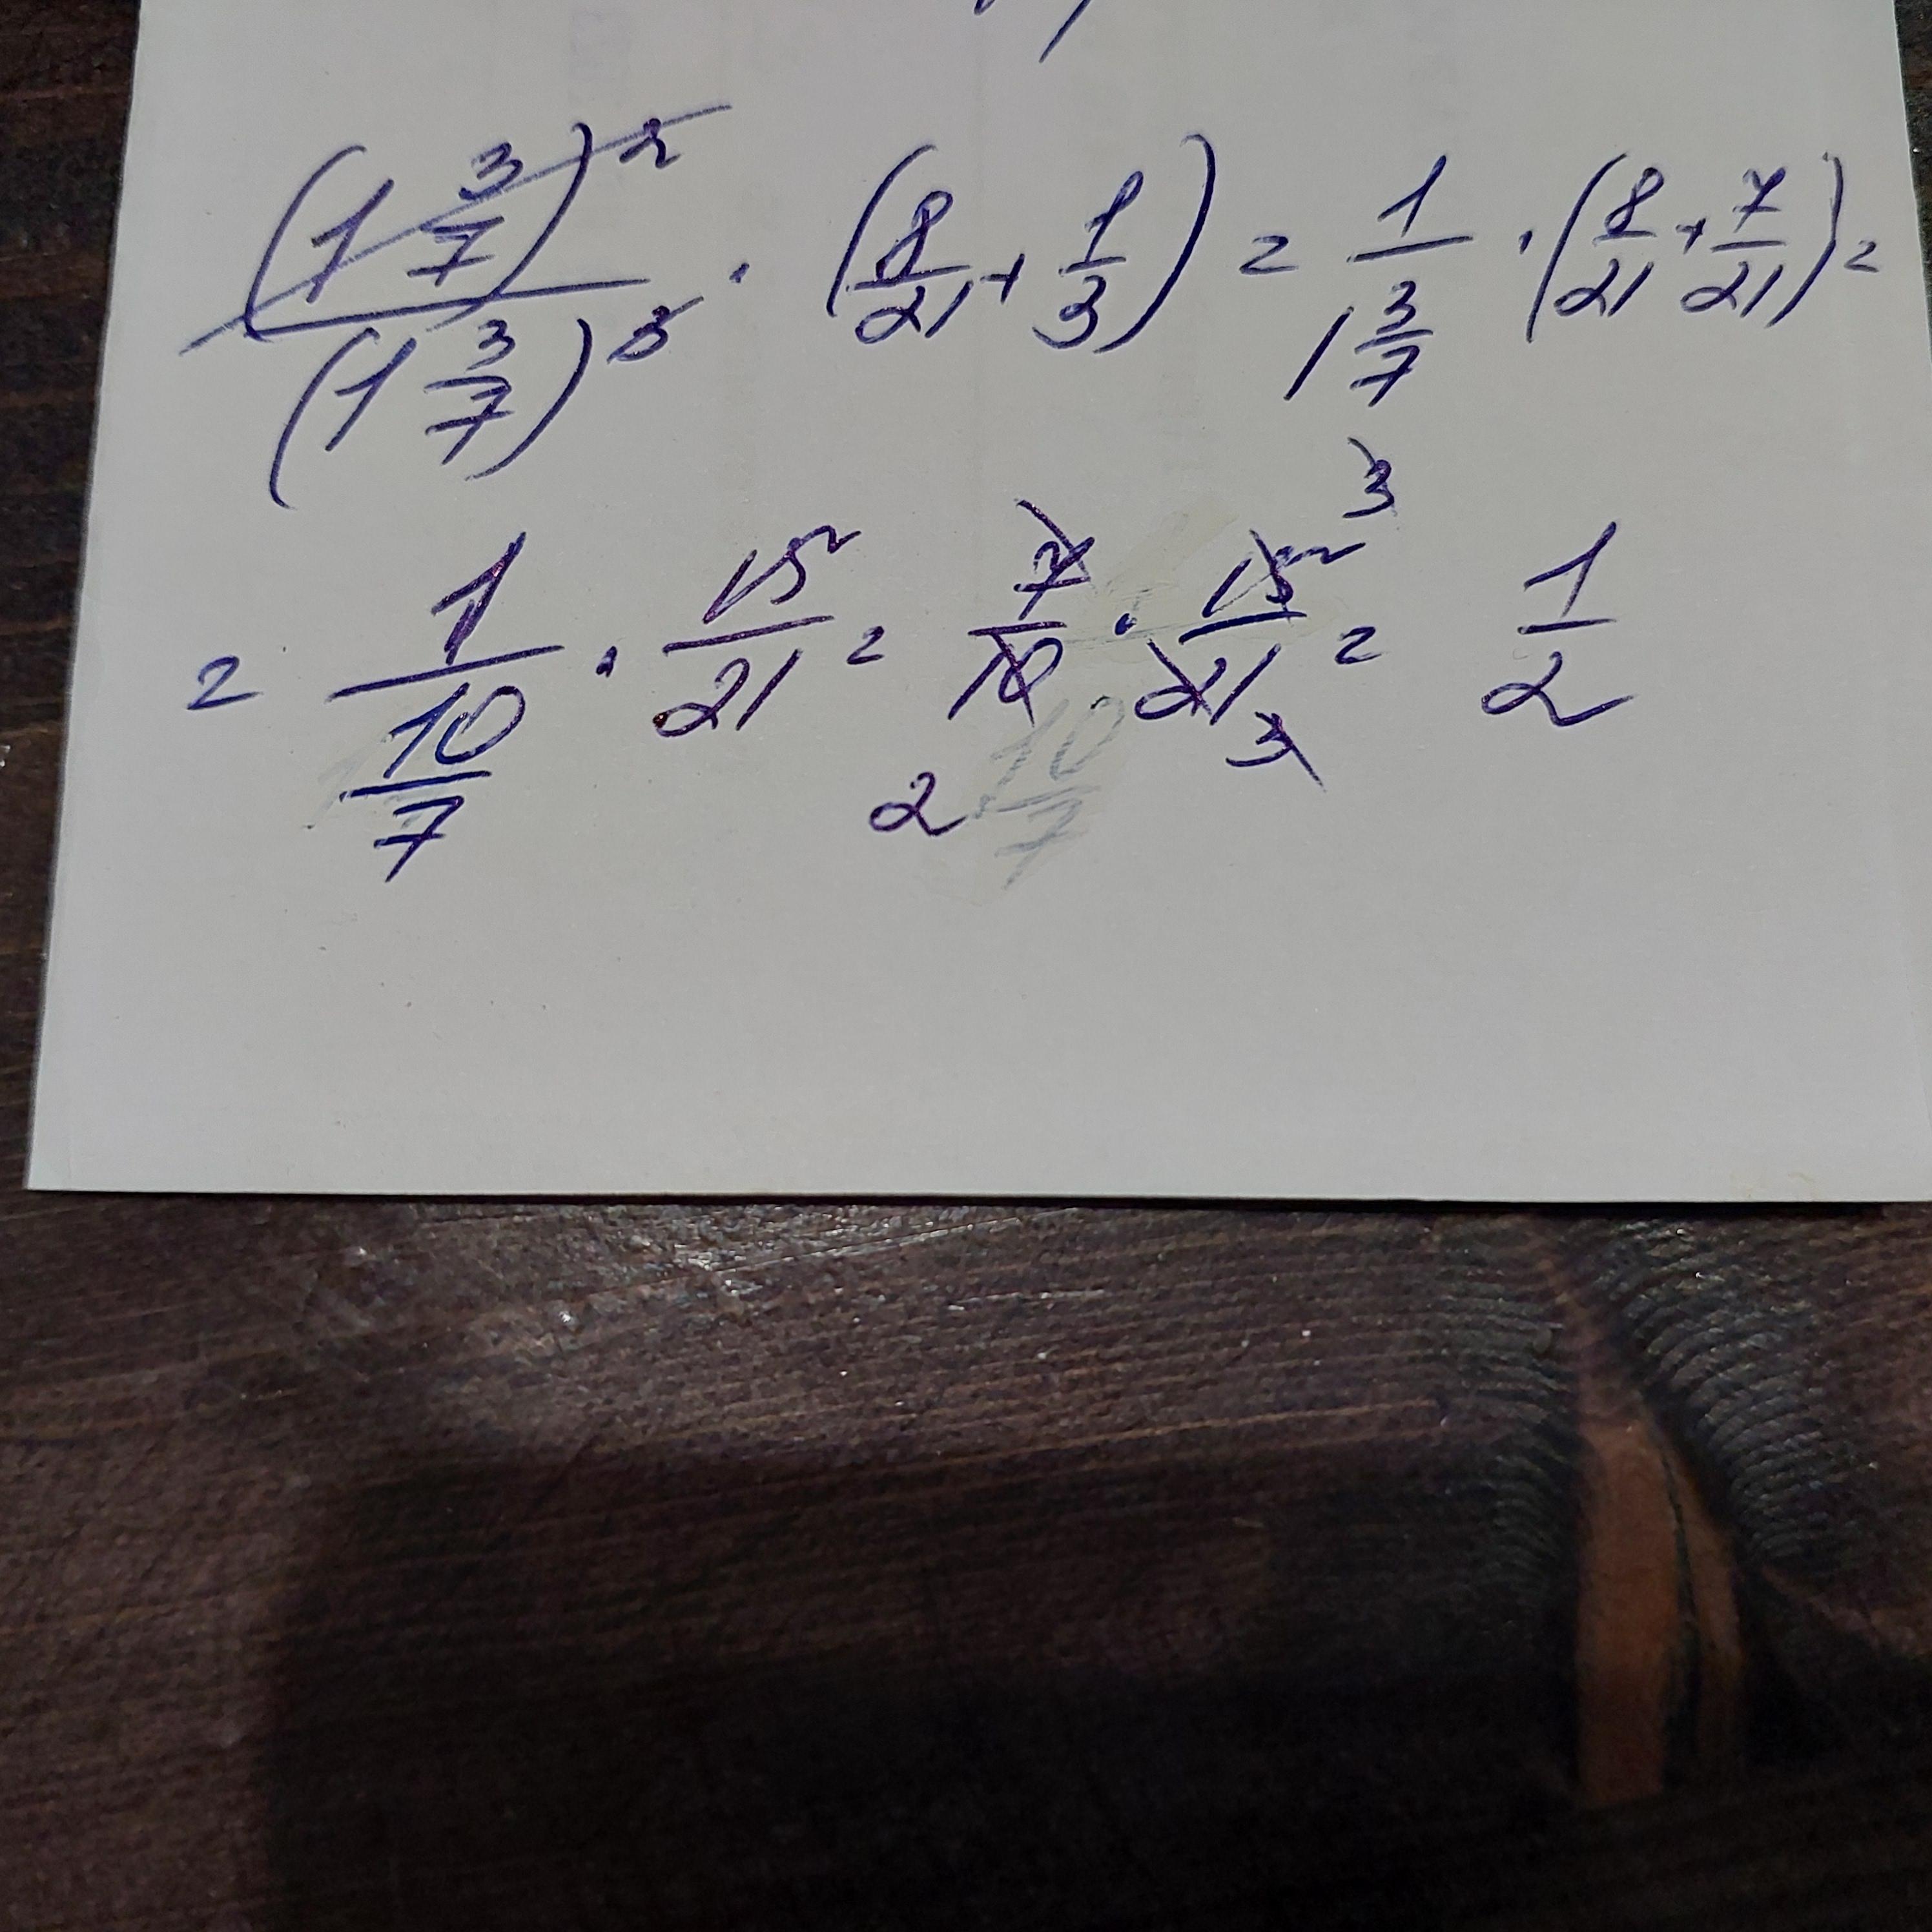 (1 3/7)² / (1 3/7)³ · (8/21 + 1/3) = 1 / 1 3/7 · (8/21 + 7/21) =
= 1 / 10/7 · 15/21 = 7/10 · 15/21 = 1/2
3
2 3
10/7